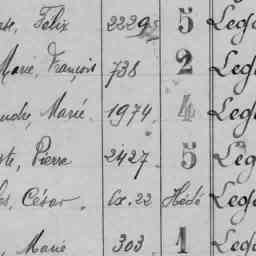 Félix 2229 5 Lega
Marie, François 738 2 Lega
Marie 1974 4 Lega
Pierre 2427 5 Lega
César Cx. 22 Hédé Lega
Marie 303 1 Lega